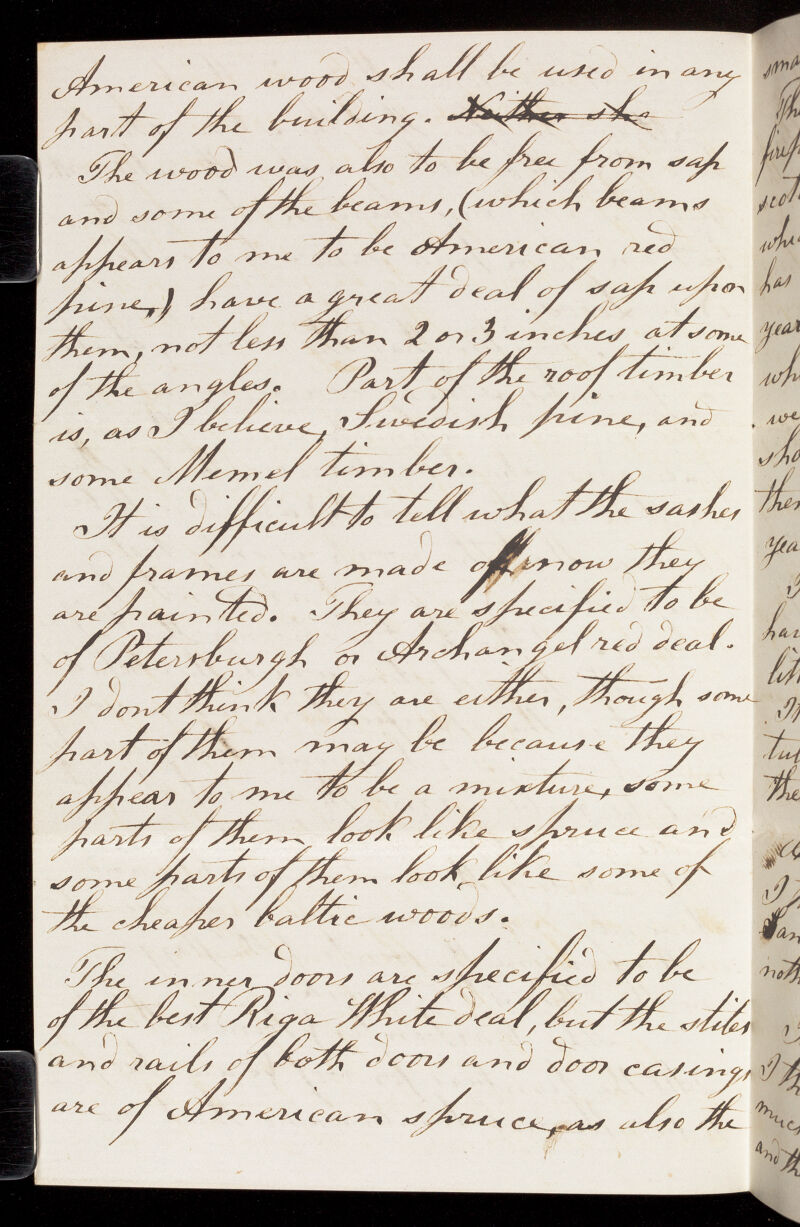 American wood shall be used in any
part of the building. Neither sha
The wood was also to be free from sap
and some of the beams, (which beams
appears to me to be American red
pine,) have a great deal of sap upon
them, not less than 2 or 3 inches at some
of the angles. Part of the roof timber
is, as I believe, Swedish pine, and
some Memel timber.
It is difficult to tell what the sashes
and frames are made of now they
are painted. They are specified to be
of Petersburgh or Archangel red deal.
I dont think they are either, though some
part of them may be because they
appear to me to be a mixture, some
parts of them look like spruce and
some parts of them look like some of
the cheaper baltic woods.
The inner doors are specified to be
of the best Riga White deal, but the stiles
and rails of both doors and door casings
are of American spruce, as also the